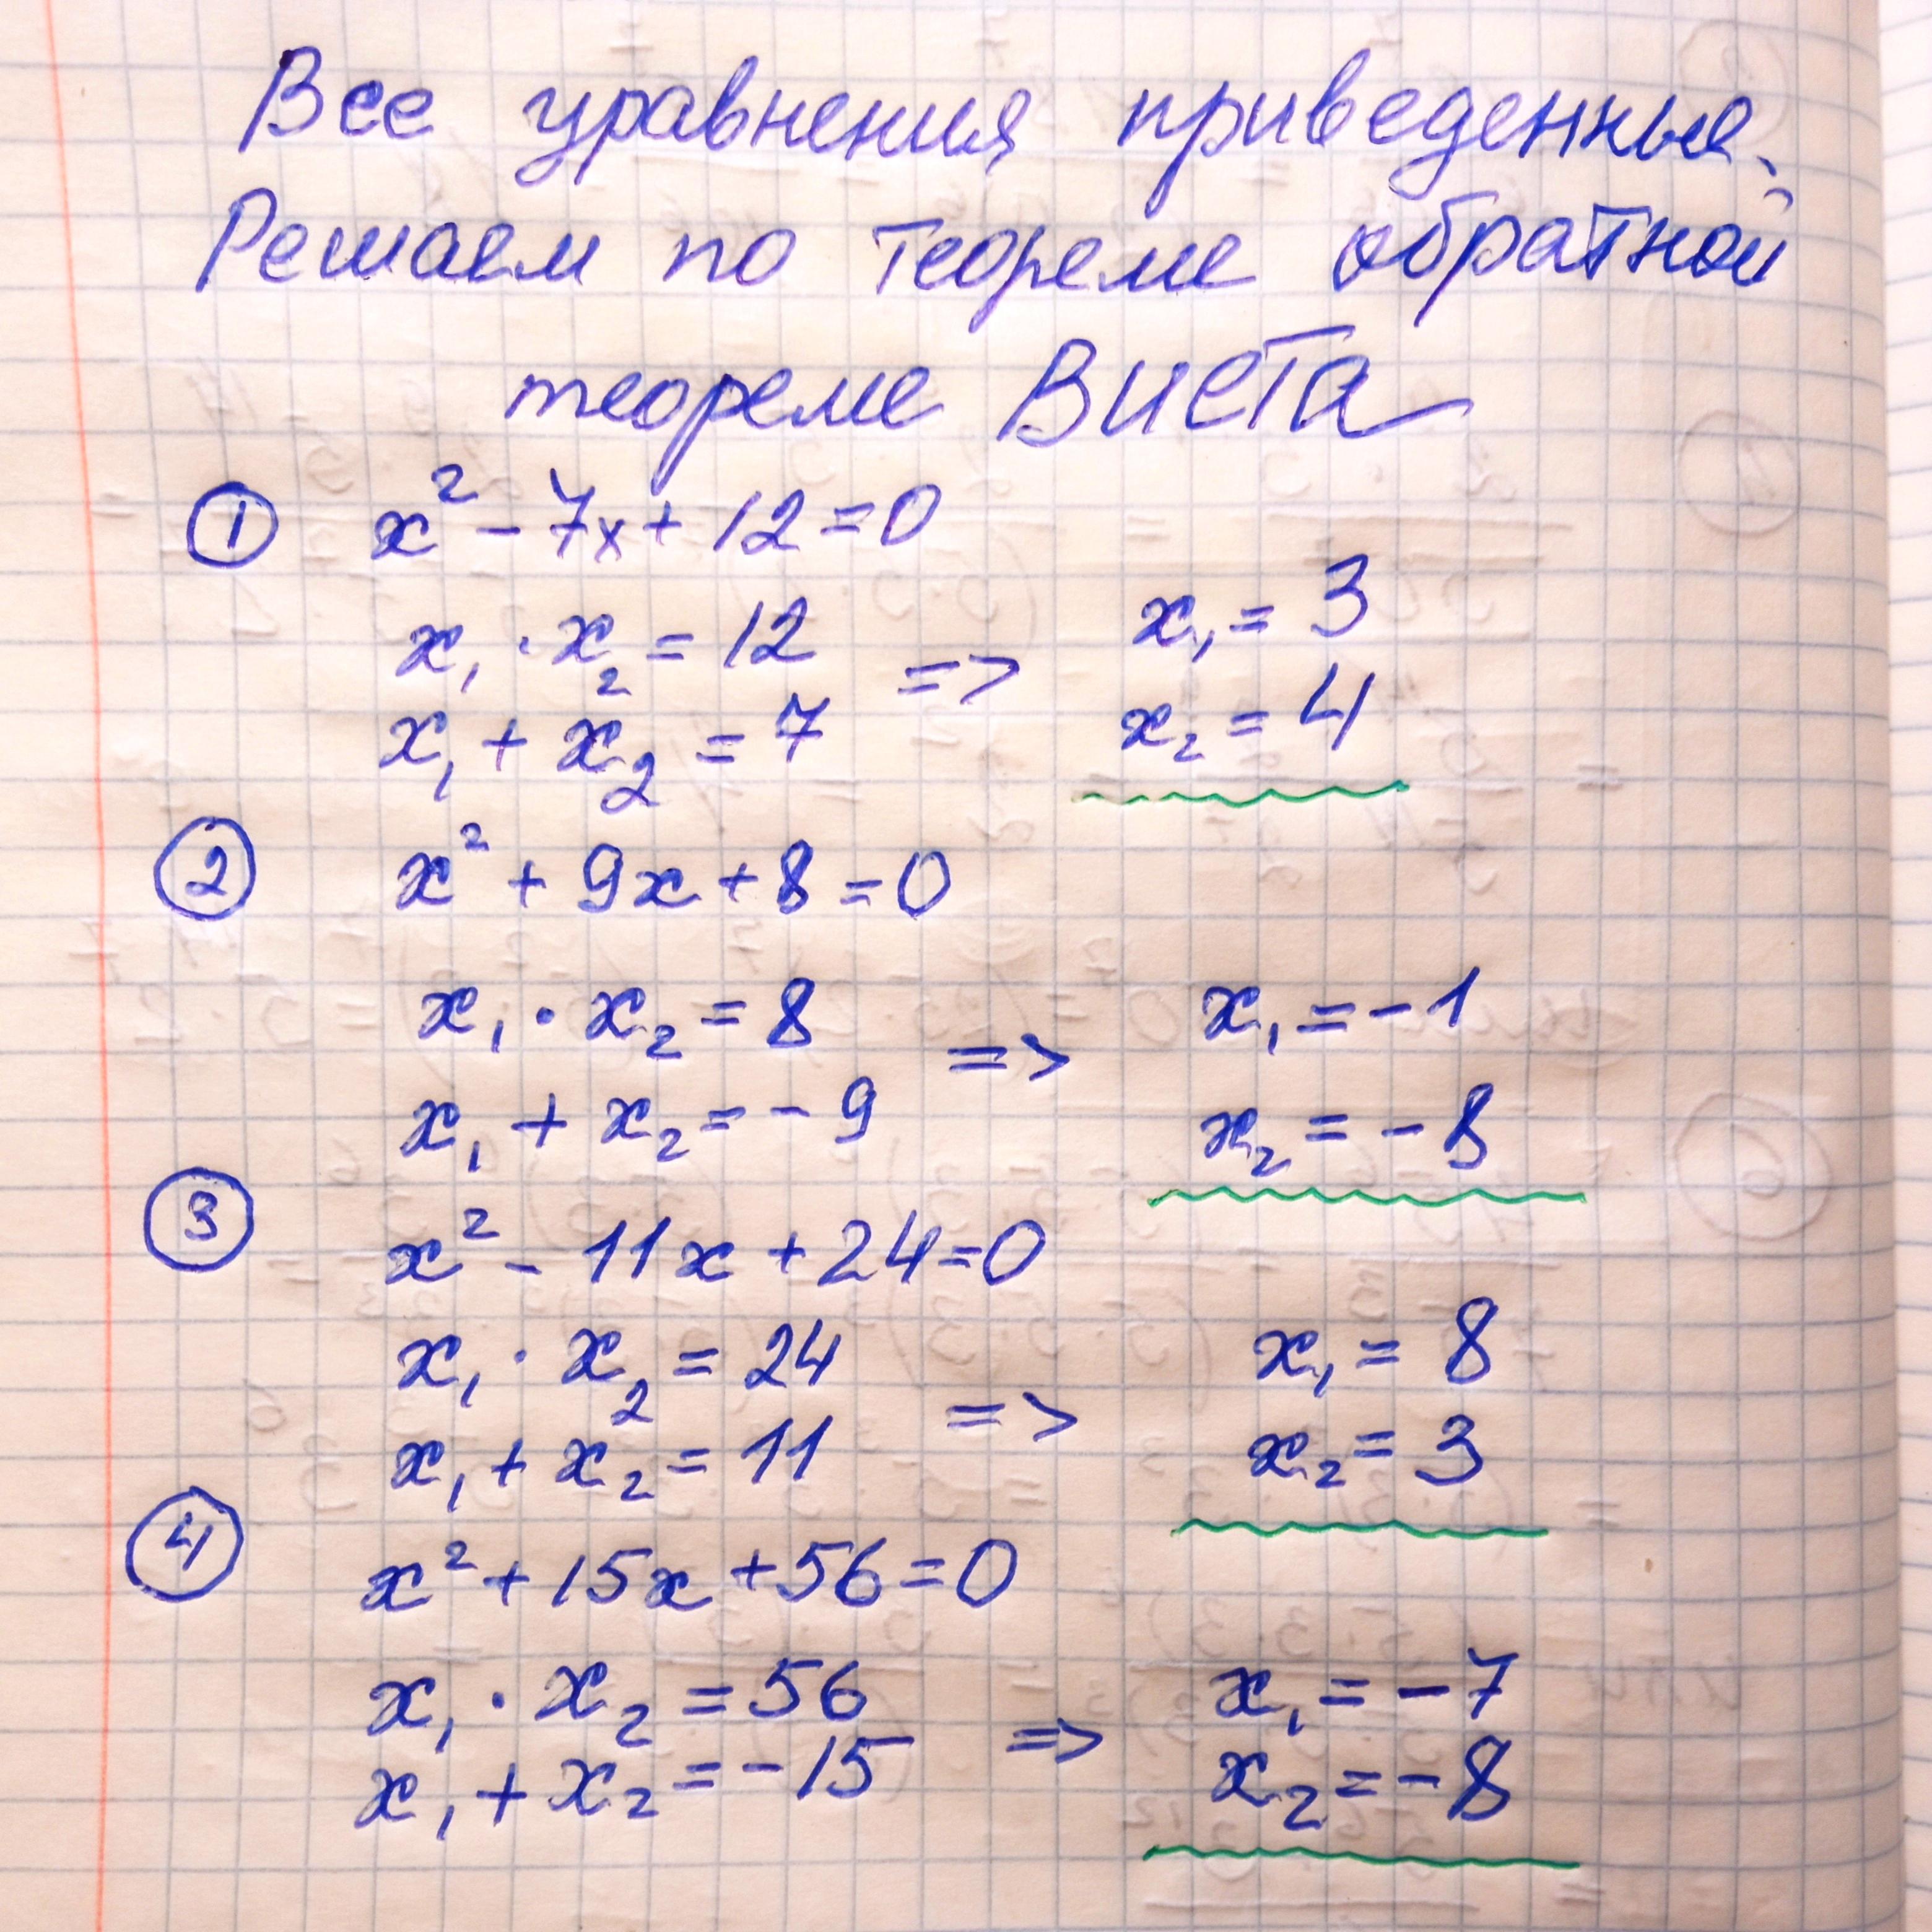 Все уравнения приведенные.
Решаем по теореме обратной
теореме Виета
① x² - 7x + 12 = 0
x₁ · x₂ = 12 => x₁ = 3
x₁ + x₂ = 7 x₂ = 4
② x² + 9x + 8 = 0
x₁ · x₂ = 8 => x₁ = -1
x₁ + x₂ = -9 x₂ = -8
③ x² - 11x + 24 = 0
x₁ · x₂ = 24 => x₁ = 8
x₁ + x₂ = 11 x₂ = 3
④ x² + 15x + 56 = 0
x₁ · x₂ = 56 => x₁ = -7
x₁ + x₂ = -15 x₂ = -8